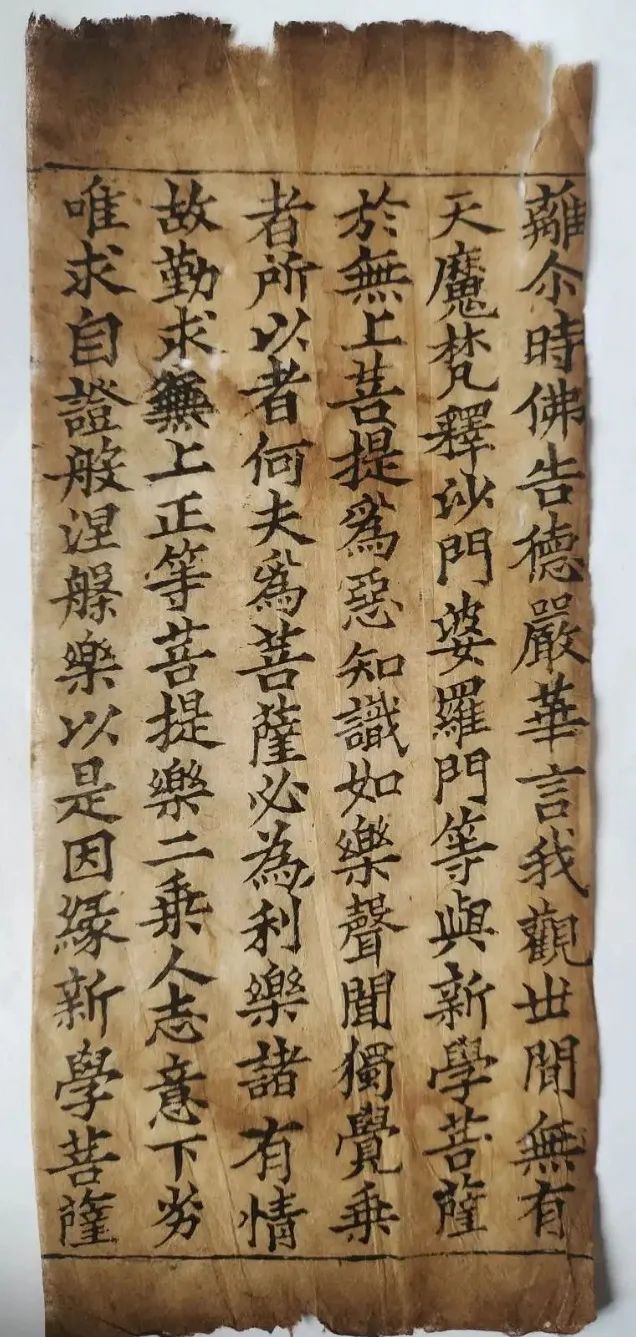 離尒時佛告德嚴華言我觀世間無有
天魔梵釋沙門婆羅門等與新學菩薩
於無上菩提爲惡知識如樂聲聞獨覺乗
者所以者何夫爲菩薩必為利樂諸有情
故勤求無上正等菩提樂二乗人志意下劣
唯求自證般涅槃樂以是因縁新學菩薩